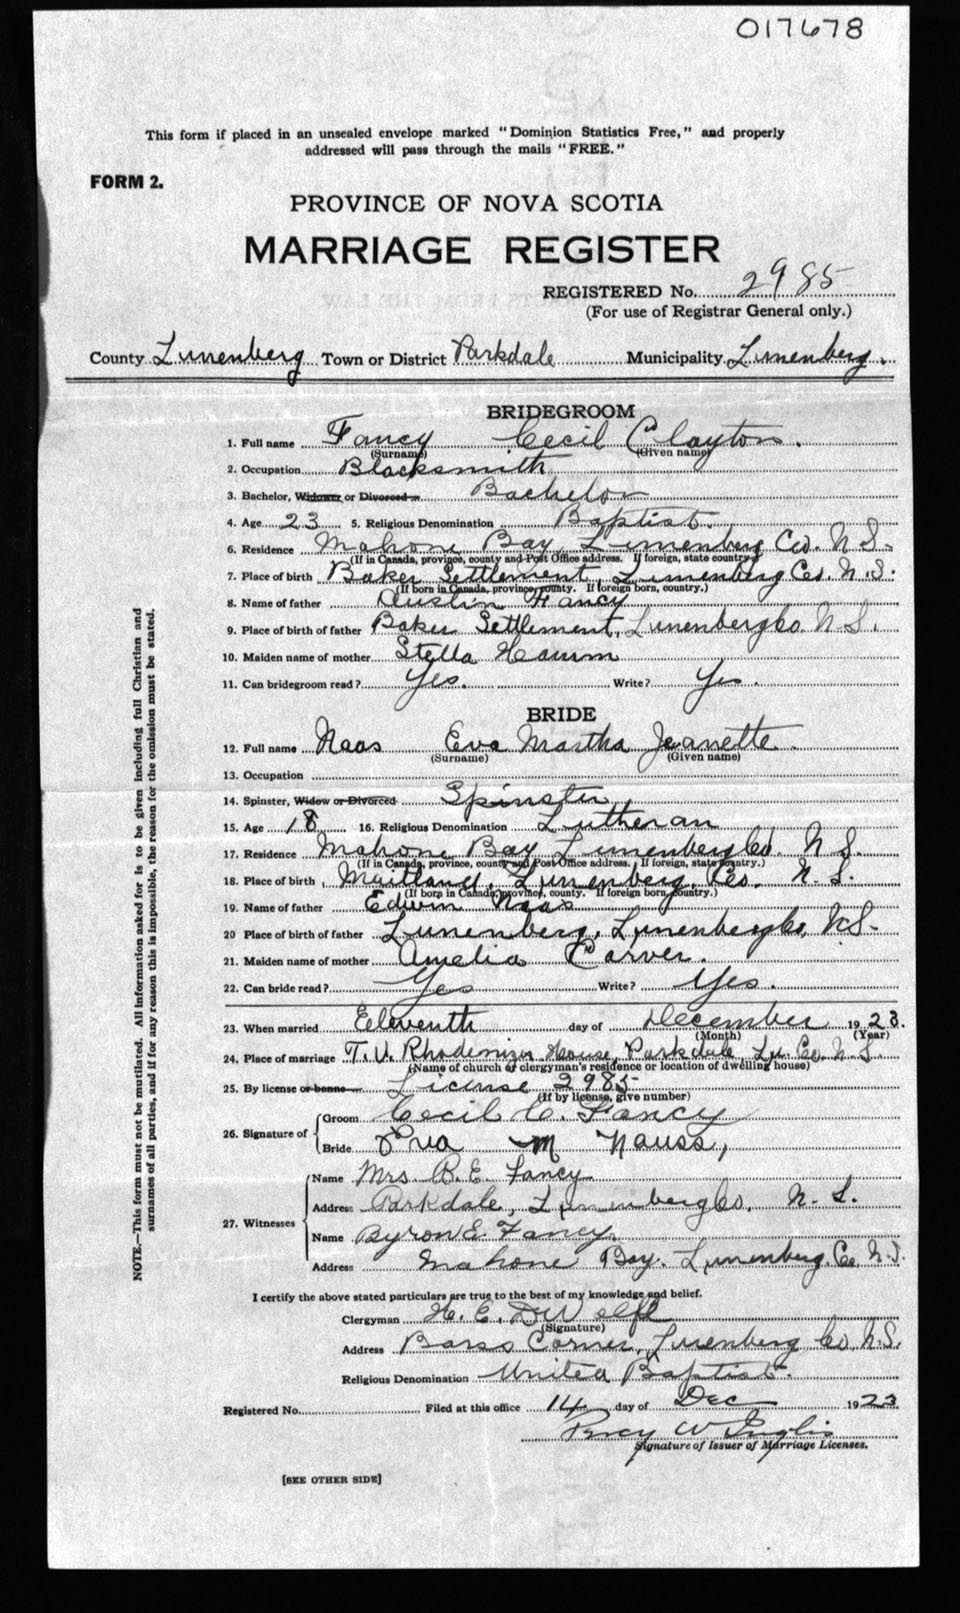 017678
This form if placed in an unsealed envelope marked "Dominion Statistics Free," and properly
addressed will pass through the mails "FREE."
FORM 2.
PROVINCE OF NOVA SCOTIA
MARRIAGE REGISTER
REGISTERED No. 2985
(For use of Registrar General only.)
County Lunenberg Town or District Parkdale Municipality Lunenberg.
BRIDEGROOM
1. Full name Fancy Cecil Clayton.
(Surname) (Given name)
2. Occupation Blacksmith
3. Bachelor, Widower or Divorced Bachelor
4. Age 23 5. Religious Denomination Baptist.
6. Residence Mahone Bay, Lunenberg Co. N.S.
(If in Canada, province, county and Post Office address. If foreign, state country.)
7. Place of birth Baker Settlement, Lunenberg Co. N.S.
(If born in Canada, province, county. If foreign born, country.)
8. Name of father Austin Fancy
9. Place of birth of father Baker Settlement, Lunenberg Co. N.S.
10. Maiden name of mother Stella Hamm
11. Can bridegroom read? Yes. Write? Yes.
BRIDE
12. Full name Naas Eva Martha Jeanette.
(Surname) (Given name)
13. Occupation
14. Spinster, Widow or Divorced Spinster
15. Age 18 16. Religious Denomination Lutheran
17. Residence Mahone Bay Lunenberg Co. N.S.
(If in Canada, province, county and Post Office address. If foreign, state country.)
18. Place of birth Maitland, Lunenberg, Co. N.S.
(If born in Canada, province, county. If foreign born, country.)
19. Name of father Edwin Naas
20 Place of birth of father Lunenberg, Lunenberg Co, N.S.
21. Maiden name of mother Amelia Carver.
22. Can bride read? Yes Write? Yes.
23. When married Eleventh day of December 1923.
(Month) (Year)
24. Place of marriage T. V. Rhodenizer House, Parkdale Lu. Co. N.S.
(Name of church or clergyman's residence or location of dwelling house)
25. By license or banns License 2985
(If by license, give number)
26. Signature of
Groom Cecil C. Fancy
Bride Eva M Nauss,
27. Witnesses
Name Mrs B. E. Fancy
Address Parkdale, Lunenberg Co. N.S.
Name Byron E. Fancy.
Address Mahone Bay. Lunenberg, Co. N.S.
I certify the above stated particulars are true to the best of my knowledge and belief.
Clergyman H. E. DeWolfe
(Signature)
Address Barss Corner, Lunenberg Co N.S.
Religious Denomination United Baptist.
Registered No. Filed at this office 14 day of Dec 1923
Percy W Inglis
Signature of Issuer of Marriage Licenses.
[SEE OTHER SIDE]
NOTE.—This form must not be mutilated. All information asked for is to be given including full Christian and
surnames of all parties, and if for any reason this is impossible, the reason for the omission must be stated.